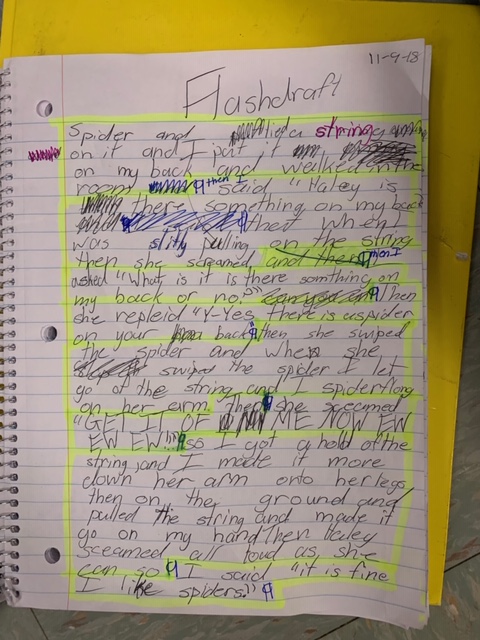 11-9-18
Flashdraft
Spider and tied a string
on it and I put it
on my back and walked in the
room ¶ then I said "Haley is
there something on my back
¶ then when I
was slitly pulling on the string
then she screamed and then ¶ then I
asked "What is it is there somthing on
my back or no," ¶ then
she repleid "Y-Yes there is a spider
on your back" ¶ then she swiped
the spider and when she
swiped the spider I let
go of the string and I spider flong
on her arm then ¶ she sceamed
"GET IT OF ME NOW EW
EW EW!!" ¶ ss I got a hold of the
string, and I made it more
down her arm onto her legs
then on the ground and
pulled the string and made it
go on my hand then Haley
sceamed all loud as she
can so ¶ I said "it is fine
I like spiders." ¶